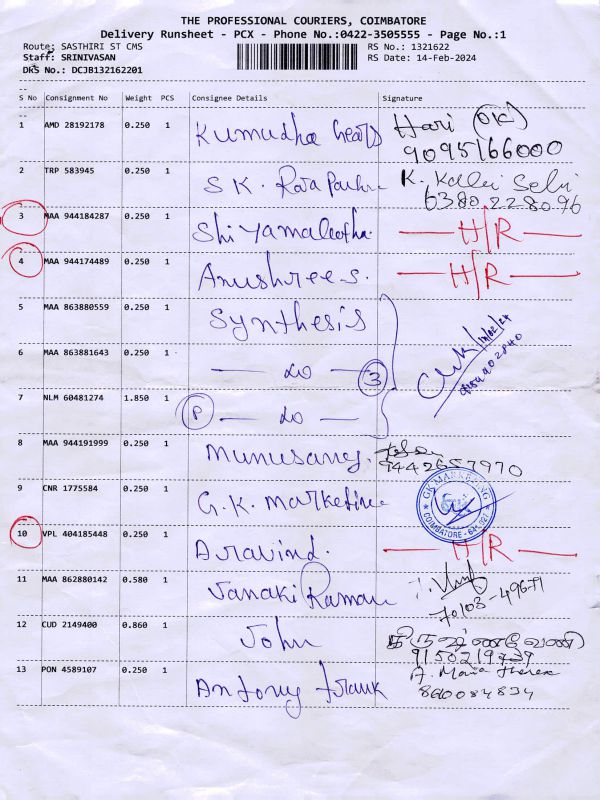 THE PROFESSIONAL COURIERS, COIMBATORE
Delivery Runsheet - PCX - Phone No.:0422-3505555 - Page No.:1
Route: SASTHIRI ST CMS RS No.: 1321622
Staff: SRINIVASAN RS Date: 14-Feb-2024
DRS No.: DCJB132162201
S No Consignment No Weight PCS Consignee Details Signature
1 AMD 28192178 0.250 1 Kumudha Hari OK
9095166000
2 TRP 583945 0.250 1 S.K. K. Kalai Selvi
6380228096
3 MAA 944184287 0.250 1 Shiyamalatha. H/R
4 MAA 944174489 0.250 1 Anushree S. H/R
5 MAA 863880559 0.250 1 Synthesis
14/02/24
6 MAA 863881643 0.250 1 do 3
7 NLM 60481274 1.850 1 P do
8 MAA 944191999 0.250 1 Munusamy.
9442657970
9 CNR 1775584 0.250 1 G.K. Marketing GK MARKETING
COIMBATORE - 641 027
10 VPL 404185448 0.250 1 Aravind. H/R
11 MAA 862880142 0.580 1 Janaki Raman
70103-49671
12 CUD 2149400 0.860 1 John
13 PON 4589107 0.250 1 Antony Frank A. Maria